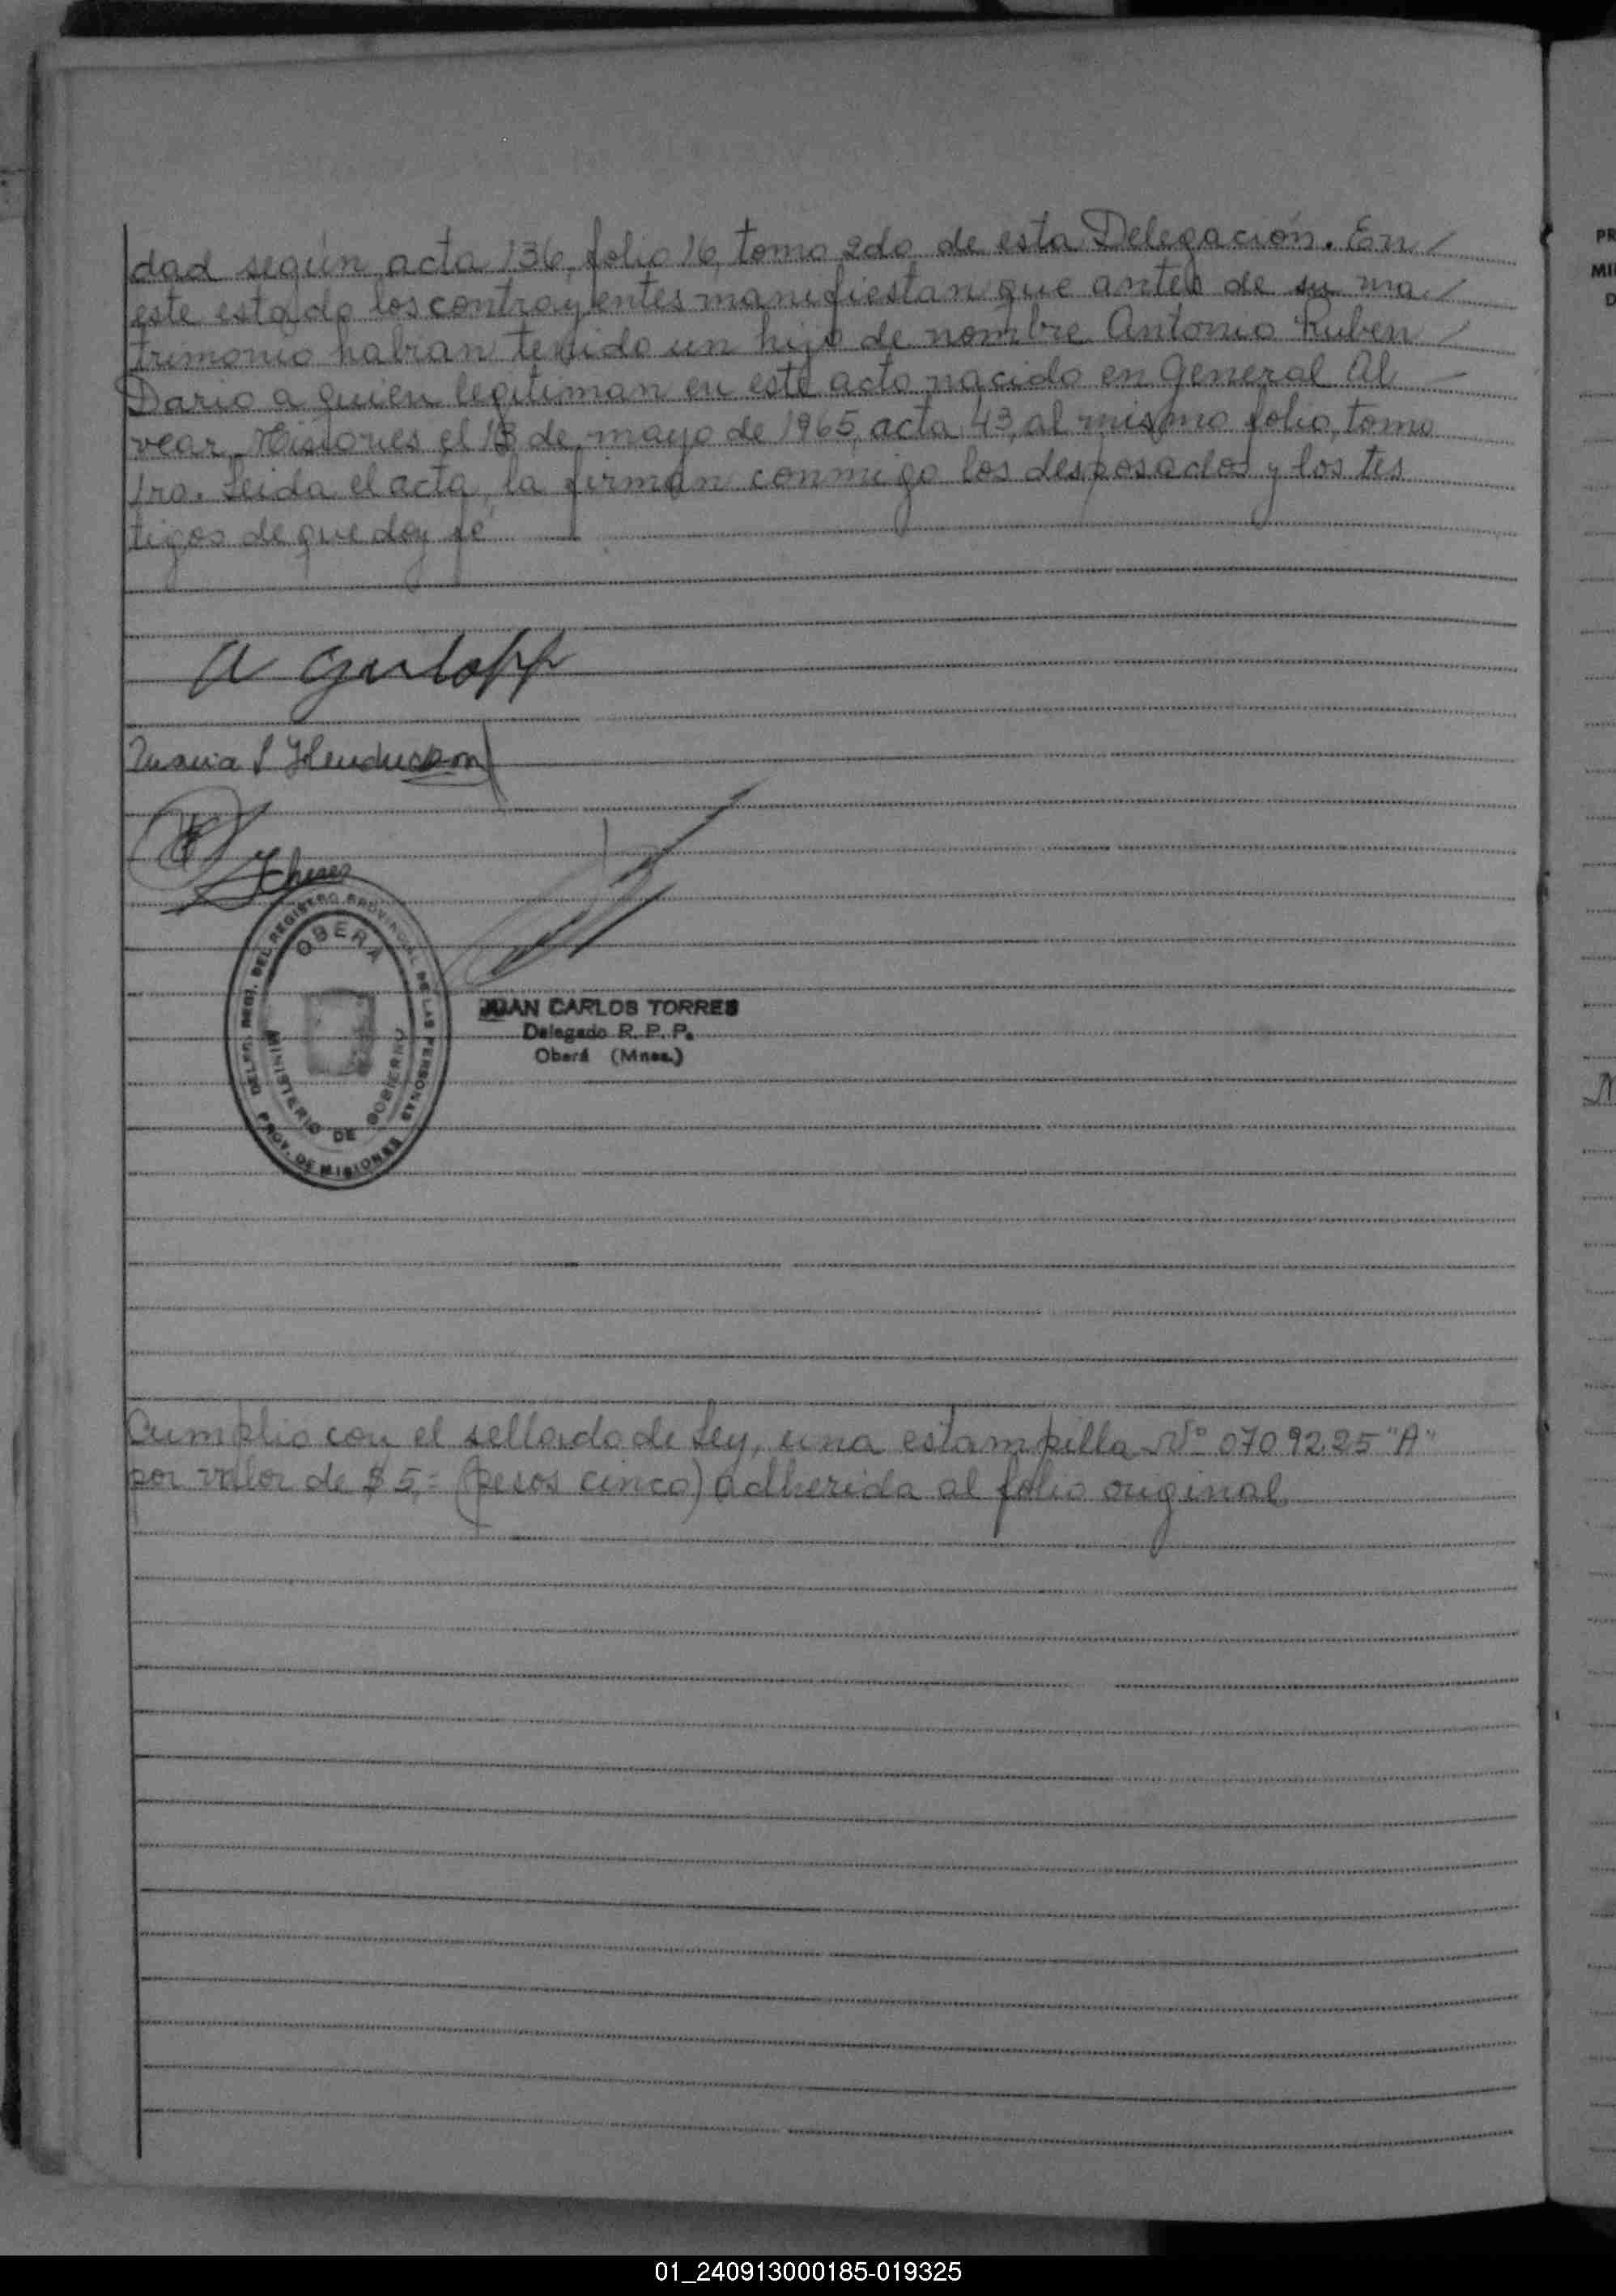 dad según acta 136, folio 16, tomo 2do de esta Delegación. En /
este estado los contrayentes manifiestan que antes de su ma /
trimonio habian tenido un hijo de nombre Antonio Ruben /
Dario a quien legitiman en este acto nacido en General Al
vear, Misiones el 13 de mayo de 1965, acta 43, al mismo folio, tomo
1ro. Leida el acta, la firman conmigo los desposados y los tes
tigos de que doy fe
Maria
OBERA
DELEG. REGI. DEL REGISTRO PROVINCIAL DE LAS PERSONAS
MINISTERIO DE GOBIERNO
PROV. DE MISIONES
JUAN CARLOS TORRES
Delegado R. P. P.
Oberá (Mnes.)
Cumplio con el sellado de Ley, una estampilla Nº 0709225 "A"
por valor de $ 5,= (pesos cinco) adherida al folio original
PR
MI
D
01_240913000185-019325